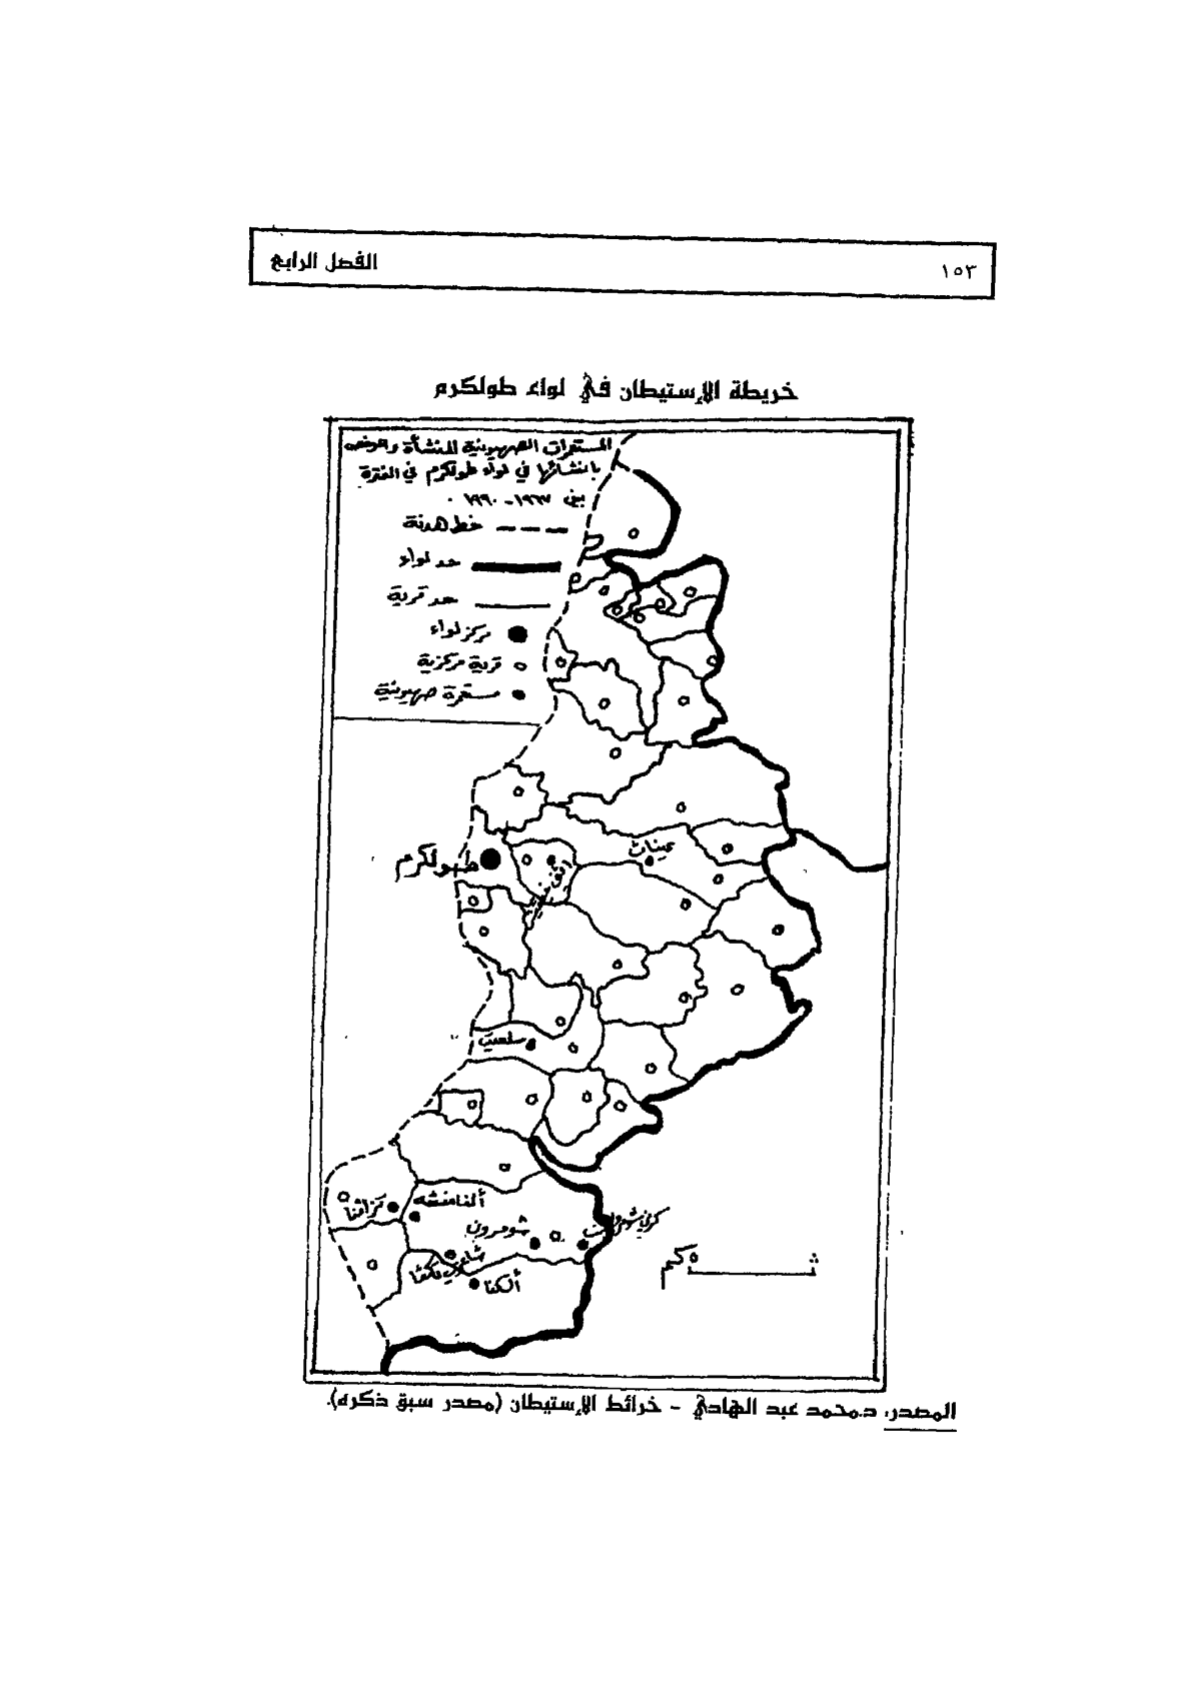 ١٥٣
الفصل الرابع
خريطة الإستيطان في لواء طولكرم
المستعمرات الصهيونية المنشأة والموصى
بانشائها في لواء طولكرم في الفترة
بين ١٩٦٧-١٩٩٠.
خط هدنة
حد لواء
حد قرية
مركز لواء
قرية مركزية
مستعمرة صهيونية
عيناب
طولكرم
سلعيت
ألفا منشه
شومرون
كرني شومرون
ألكنا
٥ كم
المصدر: د.محمد عبد الهادي - خرائط الإستيطان (مصدر سبق ذكره).